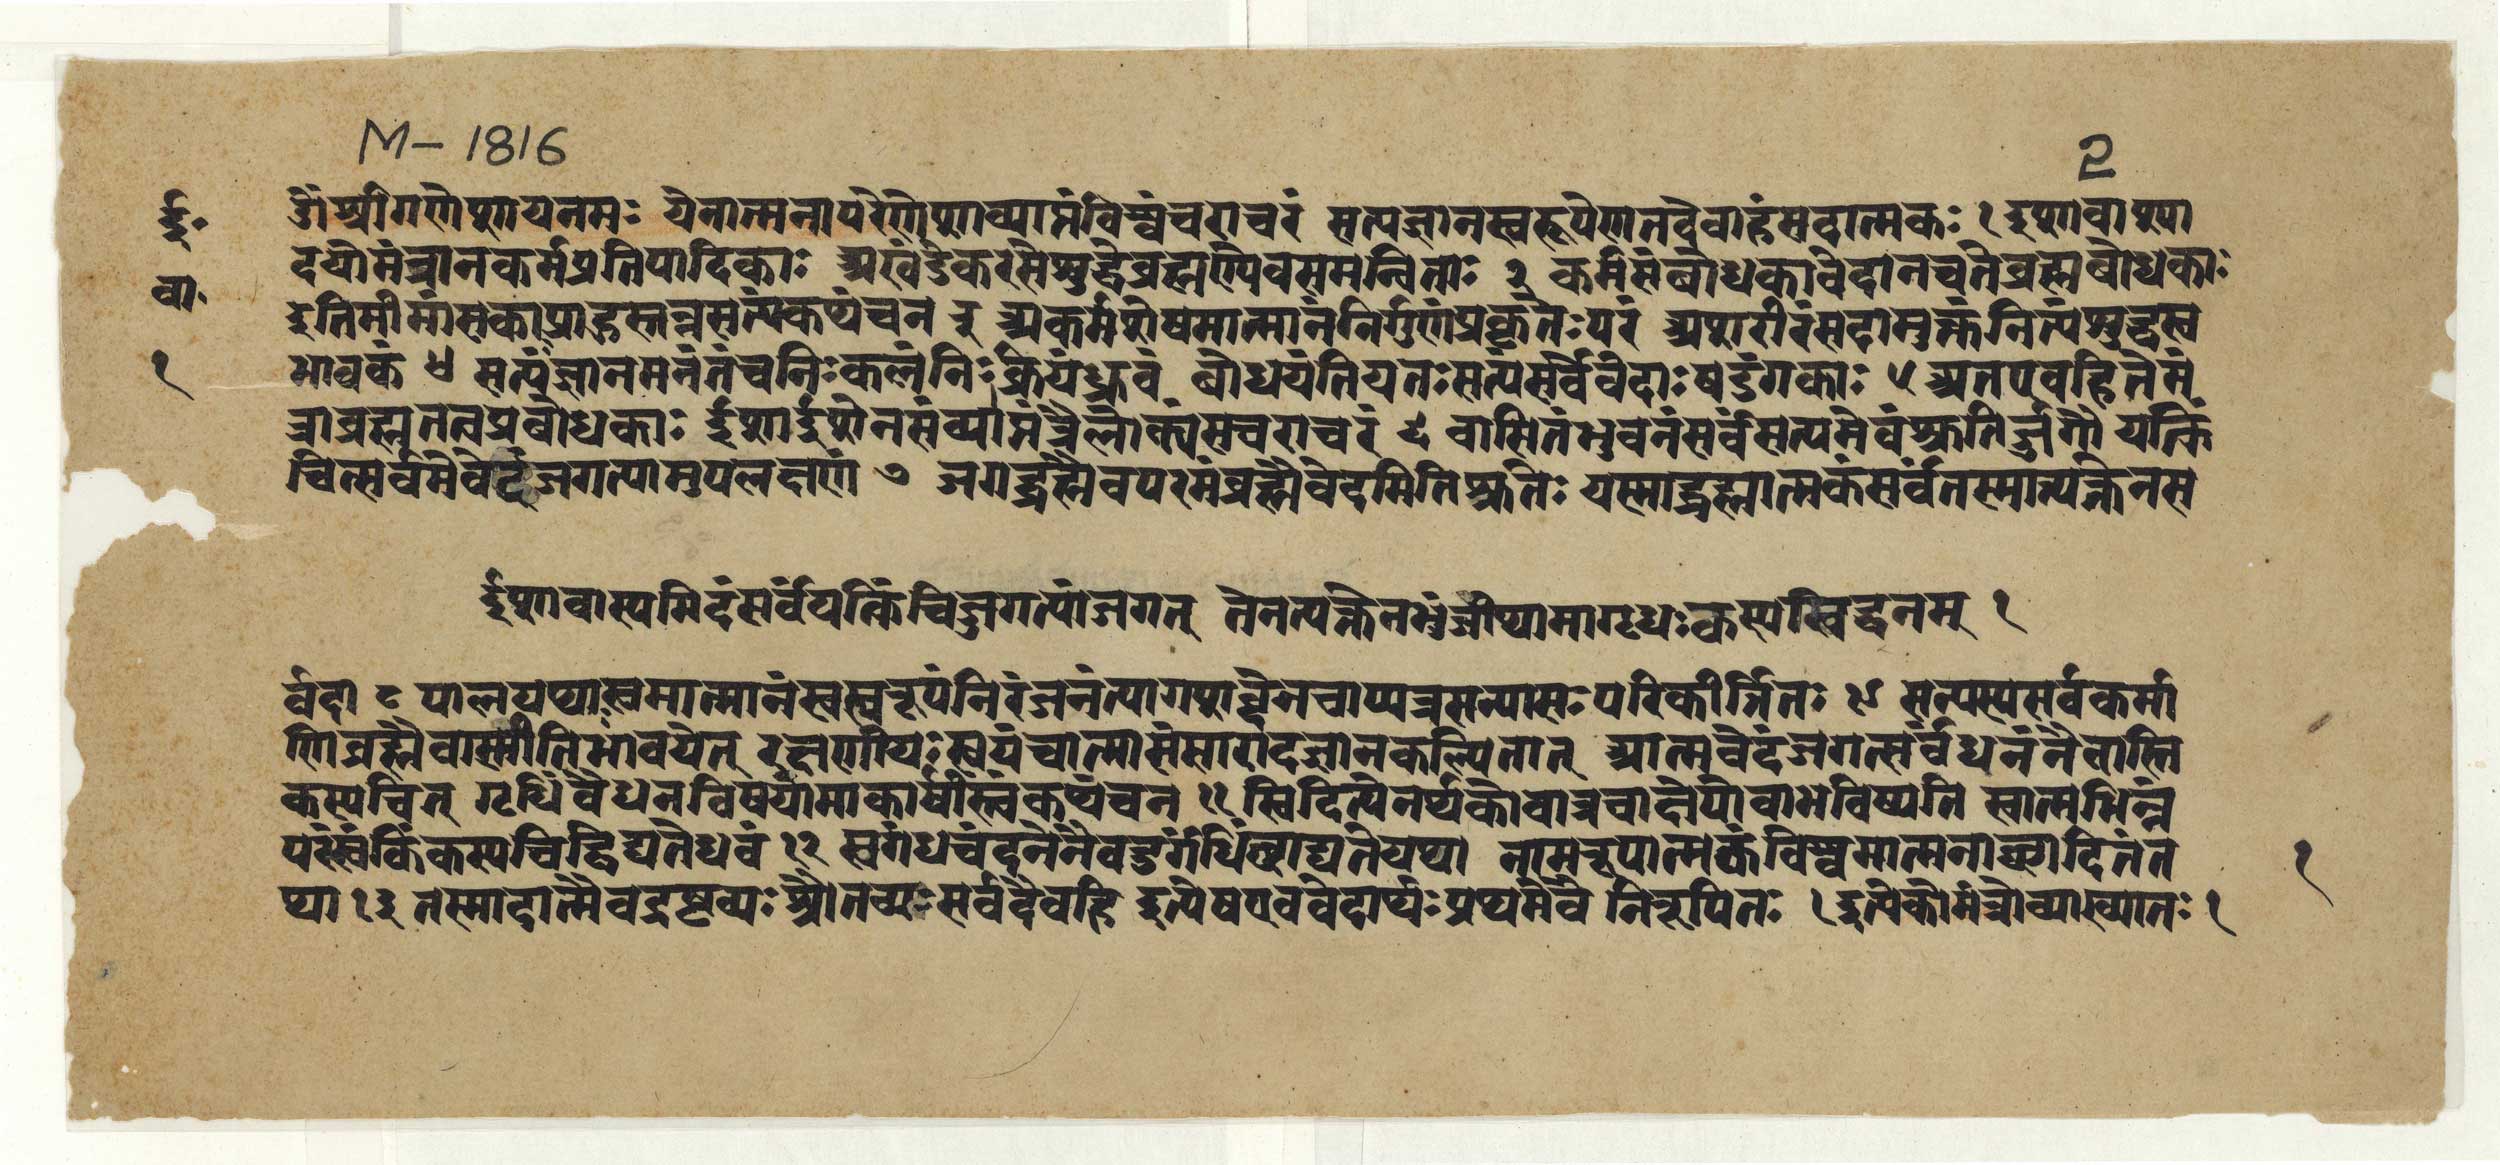 M-1816
२
ई॰
वा॰
१
ॐश्रीगणेशायनमः येनात्मनापरेणेशाव्याप्तंविश्वंचराचरं सत्यज्ञानस्वरूपेणतदेवाहंसदात्मकः १ इशावाश्या
दयोमंत्रानकर्मप्रतिपादिकाः अखंडैकरसेशुद्धेब्रह्मण्येवसमन्विताः २ कर्मसंबोधकावेदानचतेब्रह्मबोधकाः
इतिमीमांसकाप्राहुस्तन्नसत्यंकथंचन ३ अकर्मशेषमात्मानंनिर्गुणंप्रकृतेःपरं अशरीरंसदामुक्तंनित्यंशुद्धस्व
भावकं ४ सत्यंज्ञानमनंतंचनिःकलंनिःक्रियंध्रुवं बोधयंतियतःसत्यंसर्वेवेदाःषडंगकाः ५ अतएवहितेमं
त्राब्रह्मतत्वप्रबोधकाः ईशाईशेनसंव्याप्तंत्रैलोक्यंसचराचरं ६ वासितंभुवनंसर्वंसत्यमेवंश्रुतिर्जगौ यत्किं
चित्सर्वमेवेदंजगत्यामुपलक्षणं ७ जगद्ब्रह्मैवपरमंब्रह्मैवेदमितिश्रुतेः यस्माद्ब्रह्मात्मकंसर्वंतस्मात्यक्तेनस
ईशावास्यमिदंसर्वंयत्किंचिज्जगत्यांजगत् तेनत्यक्तेनभुंजीथामागृधःकस्यस्विद्धनम् १
र्वदा ८ पालयथास्त्वमात्मानंस्वस्वरूपंनिरंजनंत्यागशब्देनचाप्यत्रसन्यासःपरिकीर्त्तितः ९ सत्यस्यसर्वकर्मा
णिब्रह्मैवास्मीतिभावयेत् रक्षणीयःस्वयंचात्मासंसारादज्ञानकल्पितात् आत्मैवेदंजगत्सर्वंधनंनैवास्ति
कस्यचित् गृधिंवैधनविषयांमाकार्षीस्त्वंकथंचन ११ स्विदित्यनर्थकोवात्रचाक्षेपोवाभविष्यति स्वात्मभिन्नं
परंस्वंकिंकस्यचिद्विद्यतेध्रवं १२ स्वगंधचंदनेनैवदुर्गंधिंछाद्यतेयथा नामरूपात्मकंविश्वमात्मनाच्छादितंत
था १३ तस्मादात्मैवद्रष्टव्यःश्रोतव्यःसर्वदैवहि इत्येषएववेदार्थःप्रथमेवै निरूपितः १ इत्येकोमंत्रोव्याख्यातः १
१